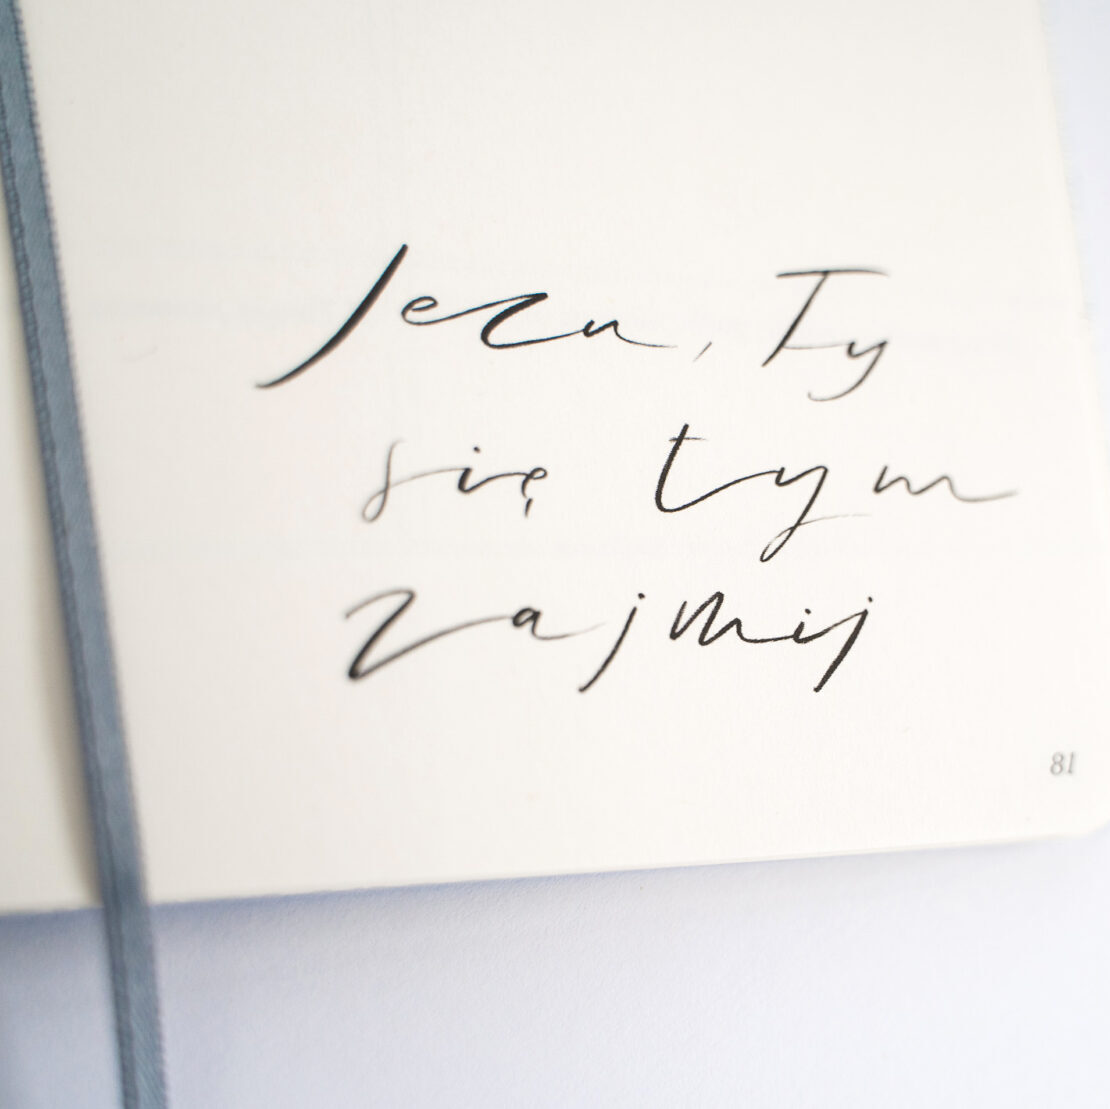 Jezu, Ty
się tym
zajmij
81